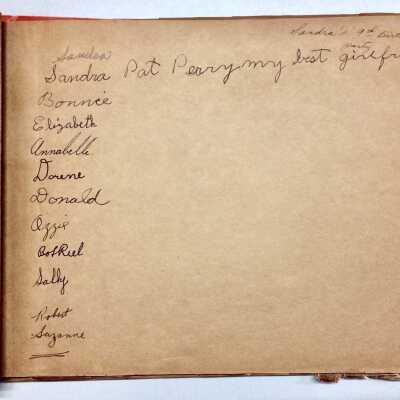 Sandra's 9th Birt
party
Sandra
Sandra Pat Perry my best girlfr
Bonnie
Elizabeth
Annabelle
Dorene
Donald
Ozzie
Sally
Robert
Suzanne